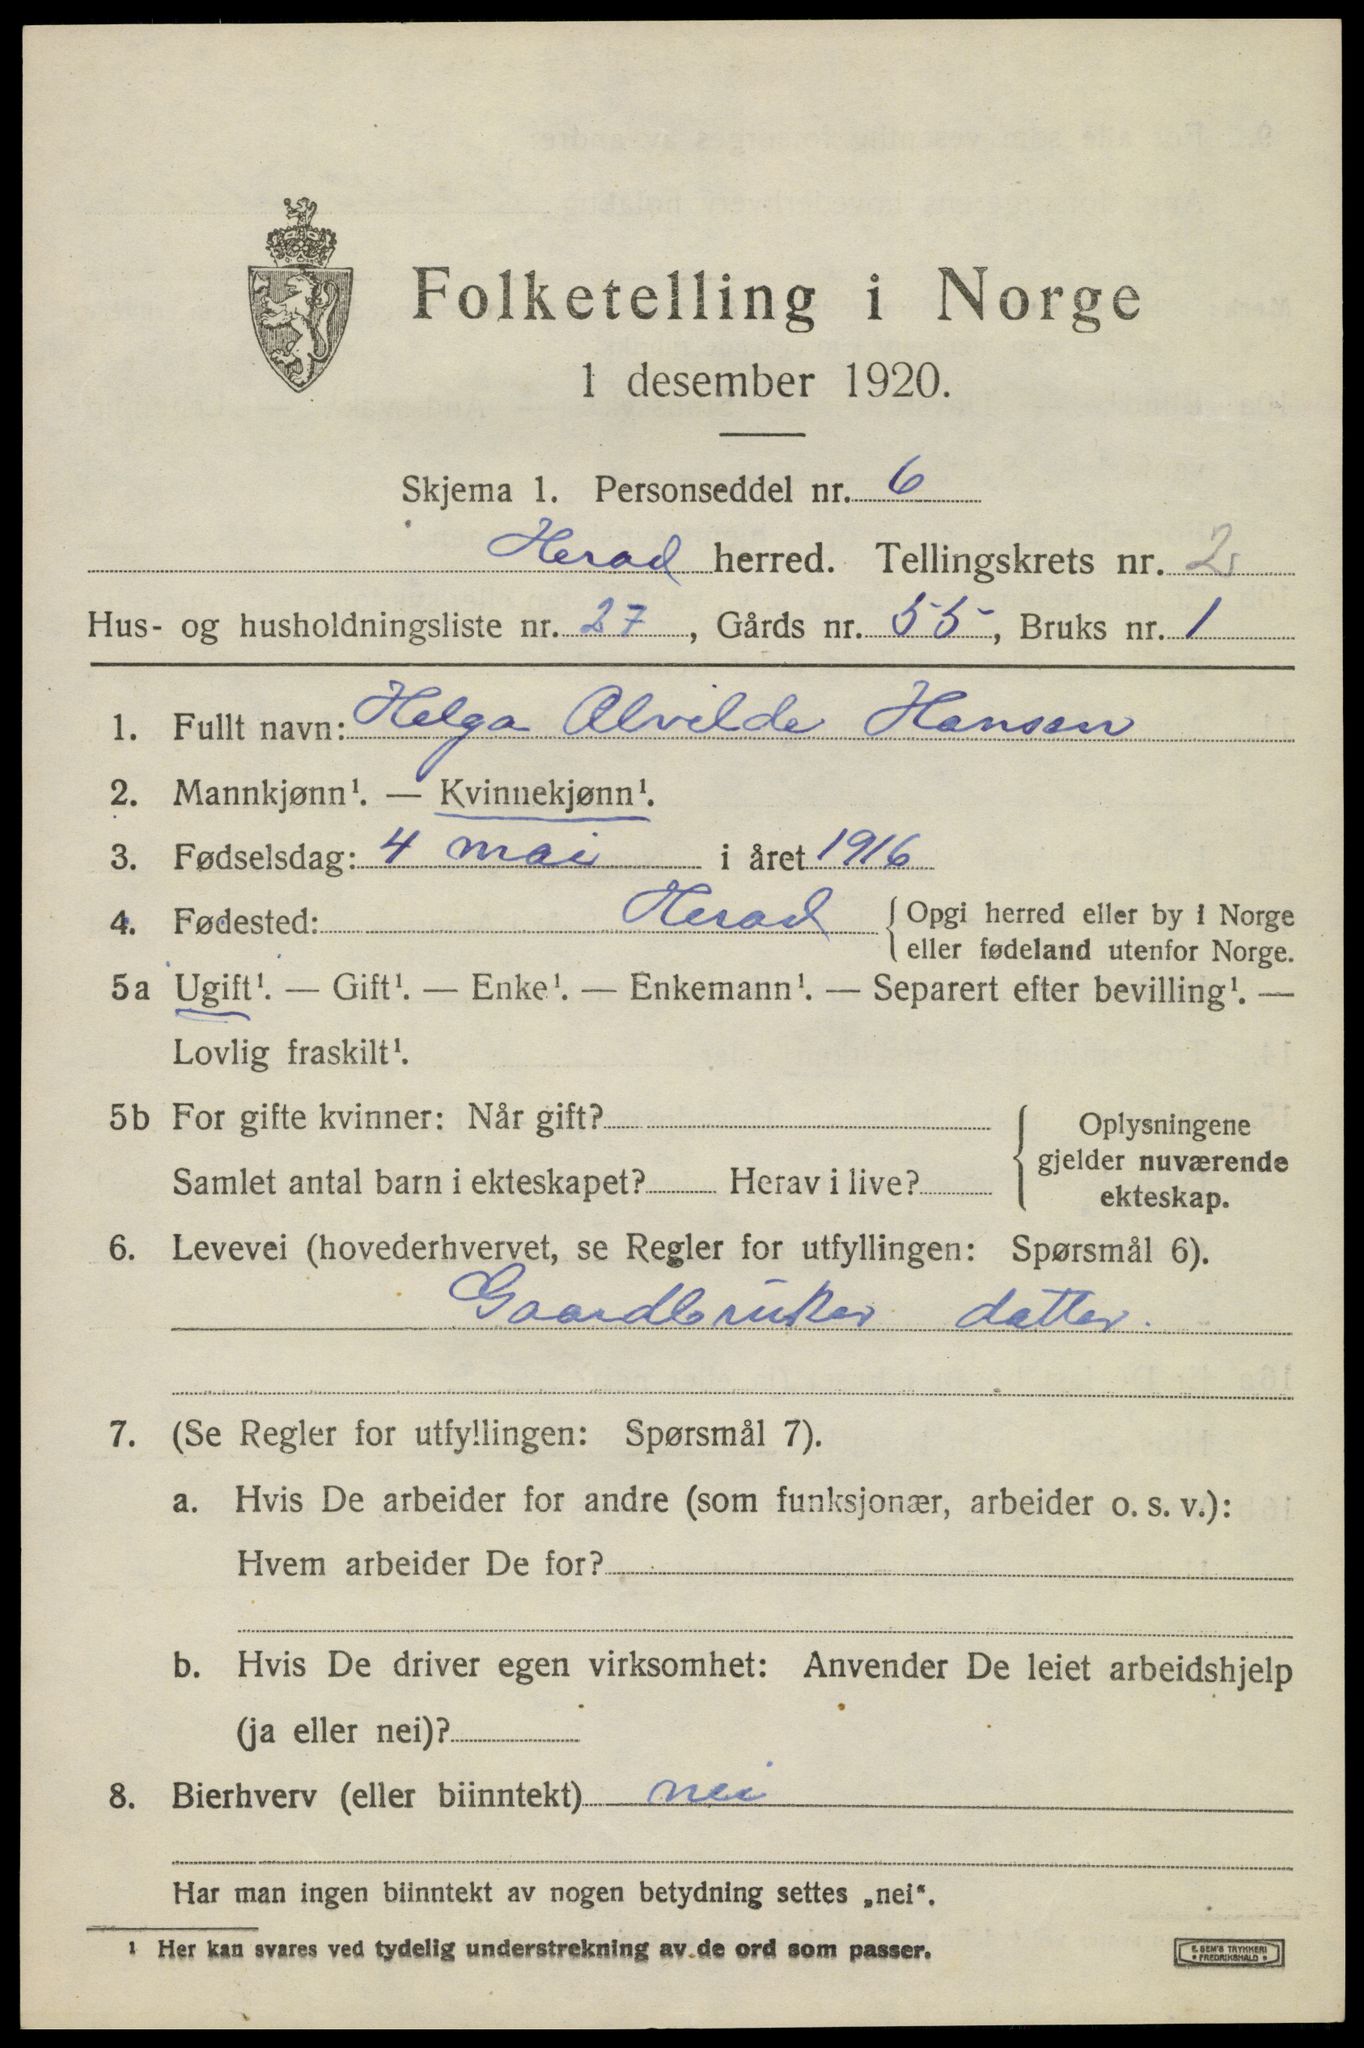 Folketelling i Norge
1 desember 1920.
Skjema 1. Personseddel nr. 6
Herad herred. Tellingskrets nr. 2
Hus- og husholdningsliste nr. 27, Gårds nr. 55, Bruks nr. 1
1. Fullt navn: Helga Alvilde Hansen
2. Mannkjønn¹. — Kvinnekjønn¹.
3. Fødselsdag: 4 mai i året 1916
4. Fødested: Herad { Opgi herred eller by i Norge
eller fødeland utenfor Norge.
5a Ugift¹. — Gift¹. — Enke¹. — Enkemann¹. — Separert efter bevilling¹. —
Lovlig fraskilt¹.
5b For gifte kvinner: Når gift?
Samlet antal barn i ekteskapet? Herav i live?
Oplysningene
gjelder nuværende
ekteskap.
6. Levevei (hovederhvervet, se Regler for utfyllingen: Spørsmål 6).
Gaardbruker datter.
7. (Se Regler for utfyllingen: Spørsmål 7).
a. Hvis De arbeider for andre (som funksjonær, arbeider o. s. v.):
Hvem arbeider De for?
b. Hvis De driver egen virksomhet: Anvender De leiet arbeidshjelp
(ja eller nei)?
8. Bierhverv (eller biinntekt) nei
Har man ingen biinntekt av nogen betydning settes „nei“.
¹ Her kan svares ved tydelig understrekning av de ord som passer.
E. SEM'S TRYKKERI
FREDRIKSHALD